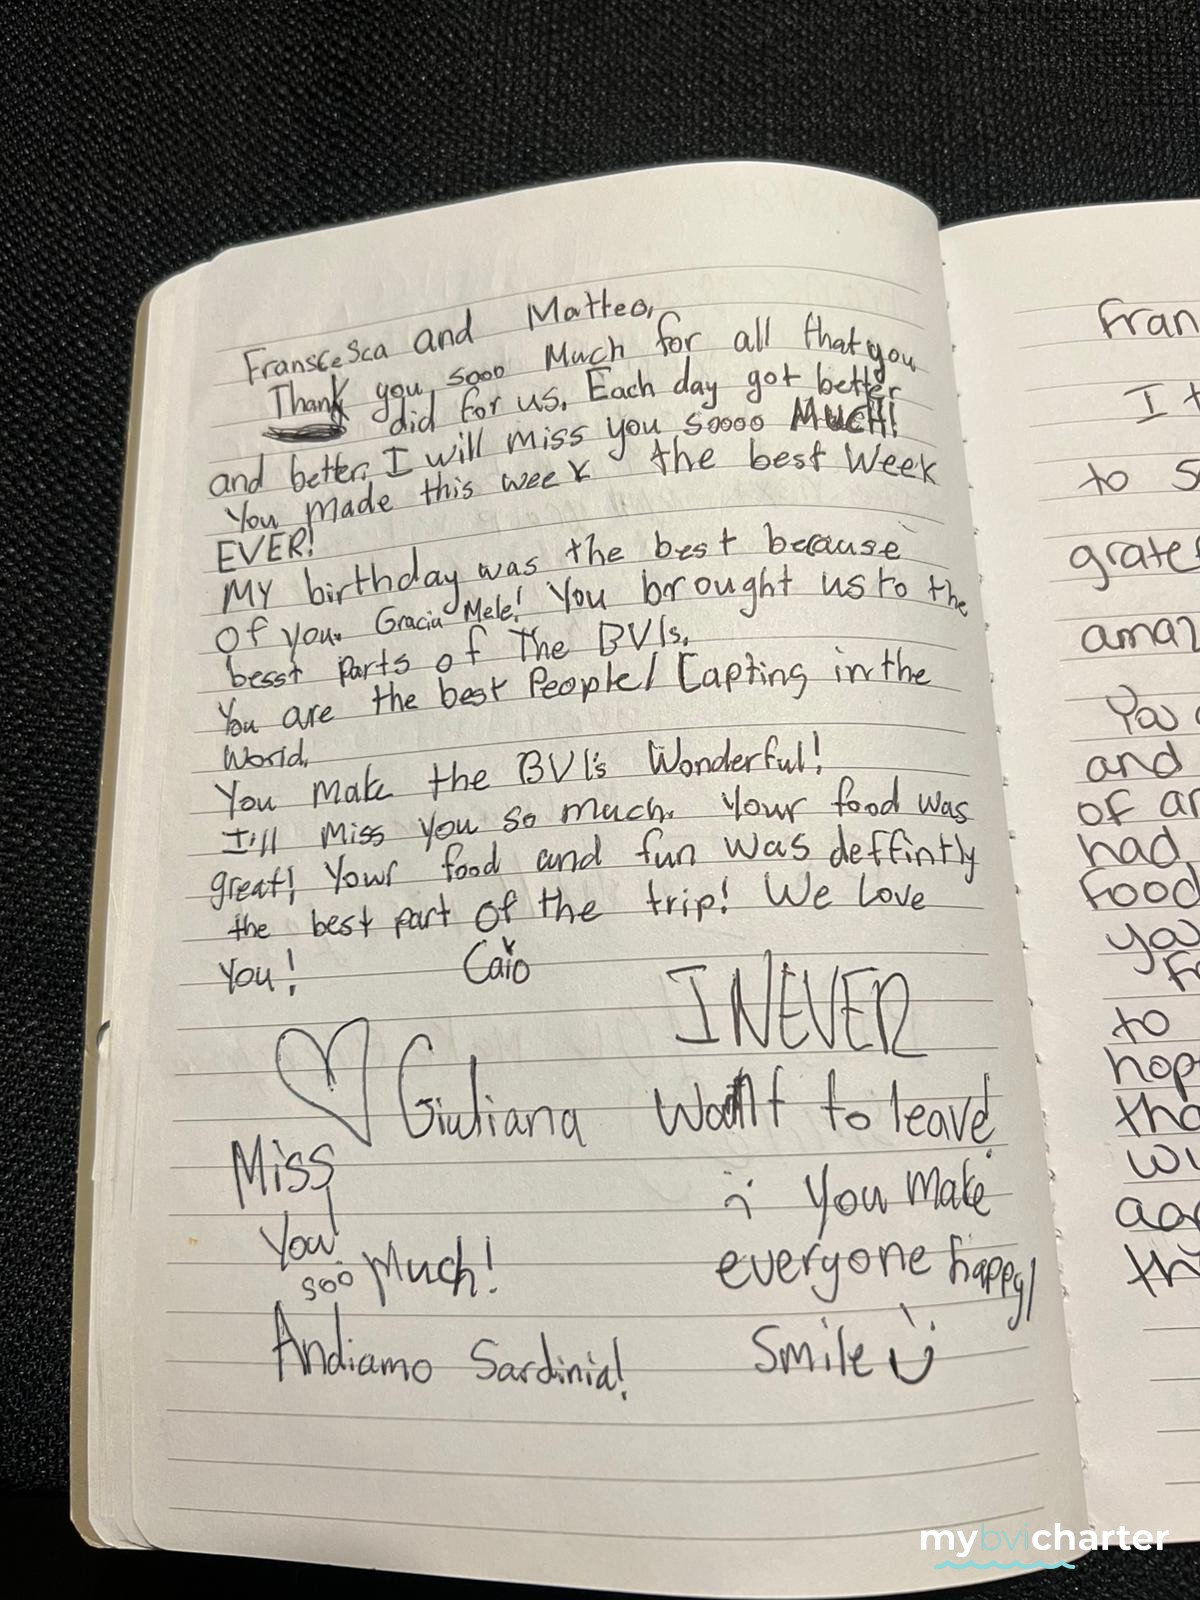 FransceSca and Matteo,
Thank you sooo Much for all that you
did for us. Each day got better
and better. I will miss you soooo MUCH!
You made this week the best Week
EVER!
MY birthday was the best because
Of you. Gracia Mele! You brought us to the
besst parts of The BVIs.
You are the best People/ Capting in the
World.
You make the BVI's Wonderful!
I'll Miss you so much. Your food was
great! Your food and fun was deffintly
the best part of the trip! We Love
You! Caio
I NEVER
Giuliana
Want to leave
Miss
:( You make
You!
everyone happy!
sooo Much!
Smile :)
Andiamo Sardinia!
Fran
I t
to S
grate
amaz
You
and
of an
had
Food
you
to
hop
tha
wi
aga
th
mybvicharter